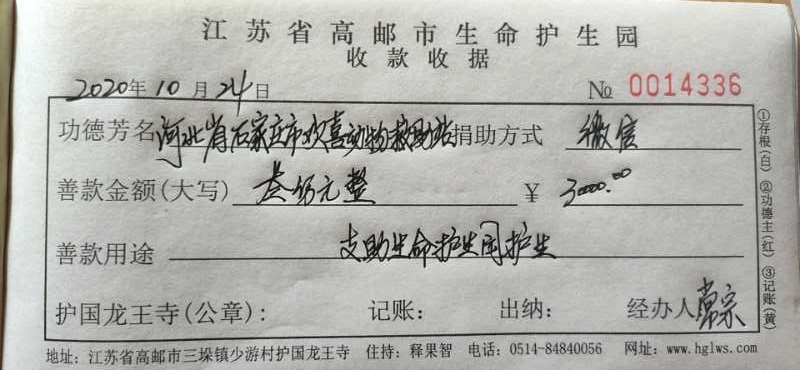 江苏省高邮市生命护生园
收款收据
2020年10月24日 № 0014336
功德芳名 河北省石家庄市欢喜动物救助站 捐助方式 微信
善款金额(大写) 叁仟元整 ¥ 3000.00
善款用途 支助生命护生园护生
护国龙王寺(公章): 记账: 出纳: 经办人 常宗
地址:江苏省高邮市三垛镇少游村护国龙王寺 住持:释果智 电话:0514-84840056 网址:www.hglws.com
①存根(白) ②功德主(红) ③记账(黄)